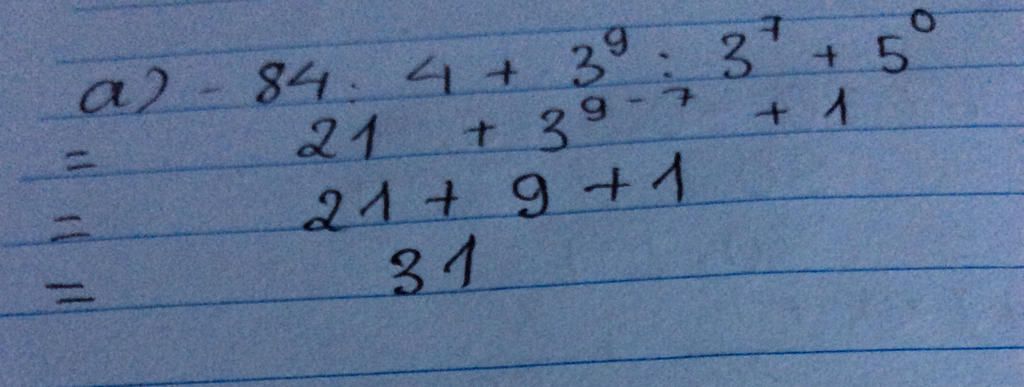 a) - 84 : 4 + 3⁹ : 3⁷ + 5⁰
= 21 + 3⁹⁻⁷ + 1
= 21 + 9 + 1
= 31